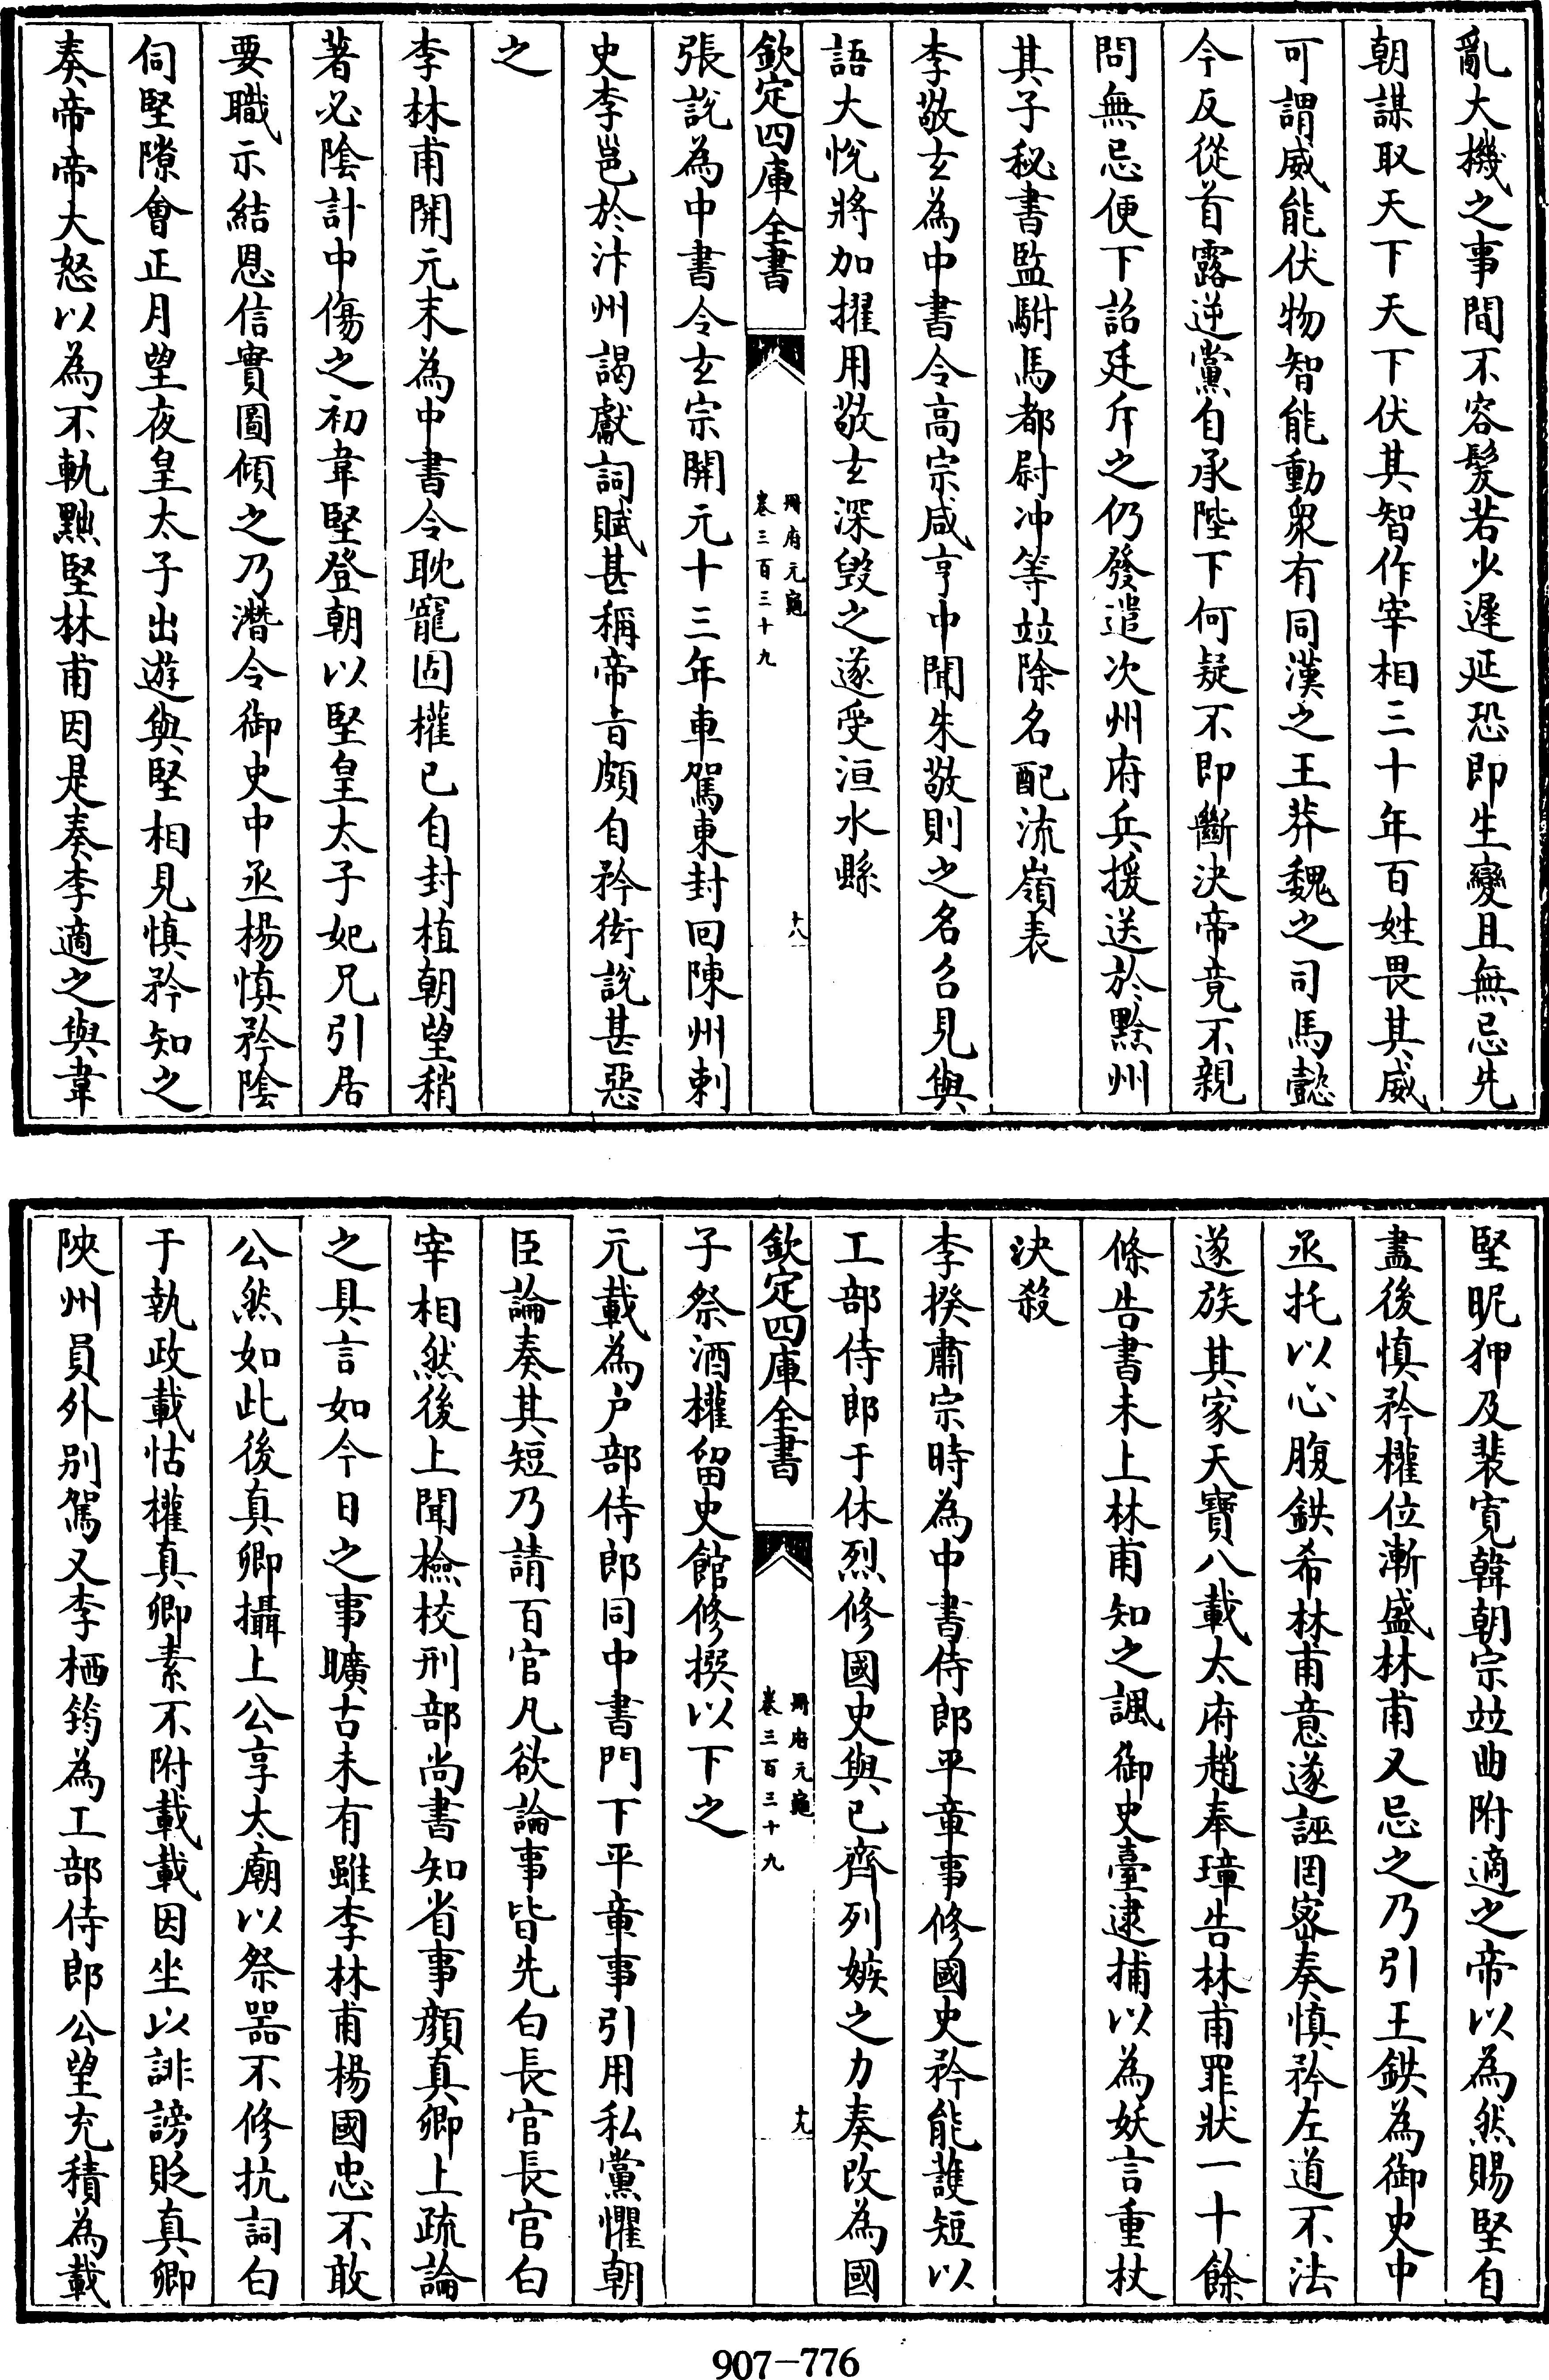 亂大機之事間不容髮若少遲延恐即生變且無忌先
朝謀取天下天下伏其智作宰相三十年百姓畏其威
可謂威能伏物智能動衆有同漢之王莽魏之司馬懿
今反從首露逆黨自承陛下何疑不即斷決帝竟不親
問無忌便下詔廷斥之仍發遣次州府兵援送於黔州
其子秘書監駙馬都尉冲等竝除名配流嶺表
李敬玄為中書令高宗咸亨中聞朱敬則之名召見與
語大悅將加擢用敬玄深毀之遂受洹水縣
欽定四庫全書
冊府元龜
卷三百三十九
十八
張說為中書令玄宗開元十三年車駕東封回陳州刺
史李邕於汴州謁獻詞賦甚稱帝旨頗自矜衒說甚惡
之
李林甫開元末為中書令耽寵固權已自封植朝望稍
著必陰計中傷之初韋堅登朝以堅皇太子妃兄引居
要職示結恩信實圖傾之乃潛令御史中丞楊慎矜陰
伺堅隙會正月望夜皇太子出遊與堅相見慎矜知之
奏帝帝大怒以為不軌黜堅林甫因是奏李適之與韋
堅昵狎及裴寬韓朝宗竝曲附適之帝以為然賜堅自
盡後慎矜權位漸盛林甫又忌之乃引王鉷為御史中
丞托以心腹鉷希林甫意遂誣罔宻奏慎矜左道不法
遂族其家天寶八載太府趙奉璋告林甫罪狀一十餘
條告書未上林甫知之諷御史臺逮捕以為妖言重杖
決殺
李揆肅宗時為中書侍郎平章事修國史矜能護短以
工部侍郎于休烈修國史與已齊列嫉之力奏改為國
欽定四庫全書
冊府元龜
卷三百三十九
十九
子祭酒權留史館修撰以下之
元載為户部侍郎同中書門下平章事引用私黨懼朝
臣論奏其短乃請百官凡欲論事皆先白長官長官白
宰相然後上聞檢校刑部尚書知省事顏真卿上疏論
之具言如今日之事曠古未有雖李林甫楊國忠不敢
公然如此後真卿攝上公享太廟以祭器不修抗詞白
于執政載怙權真卿素不附載載因坐以誹謗貶真卿
陝州員外別駕又李栖筠為工部侍郎公望充積為載
907-776